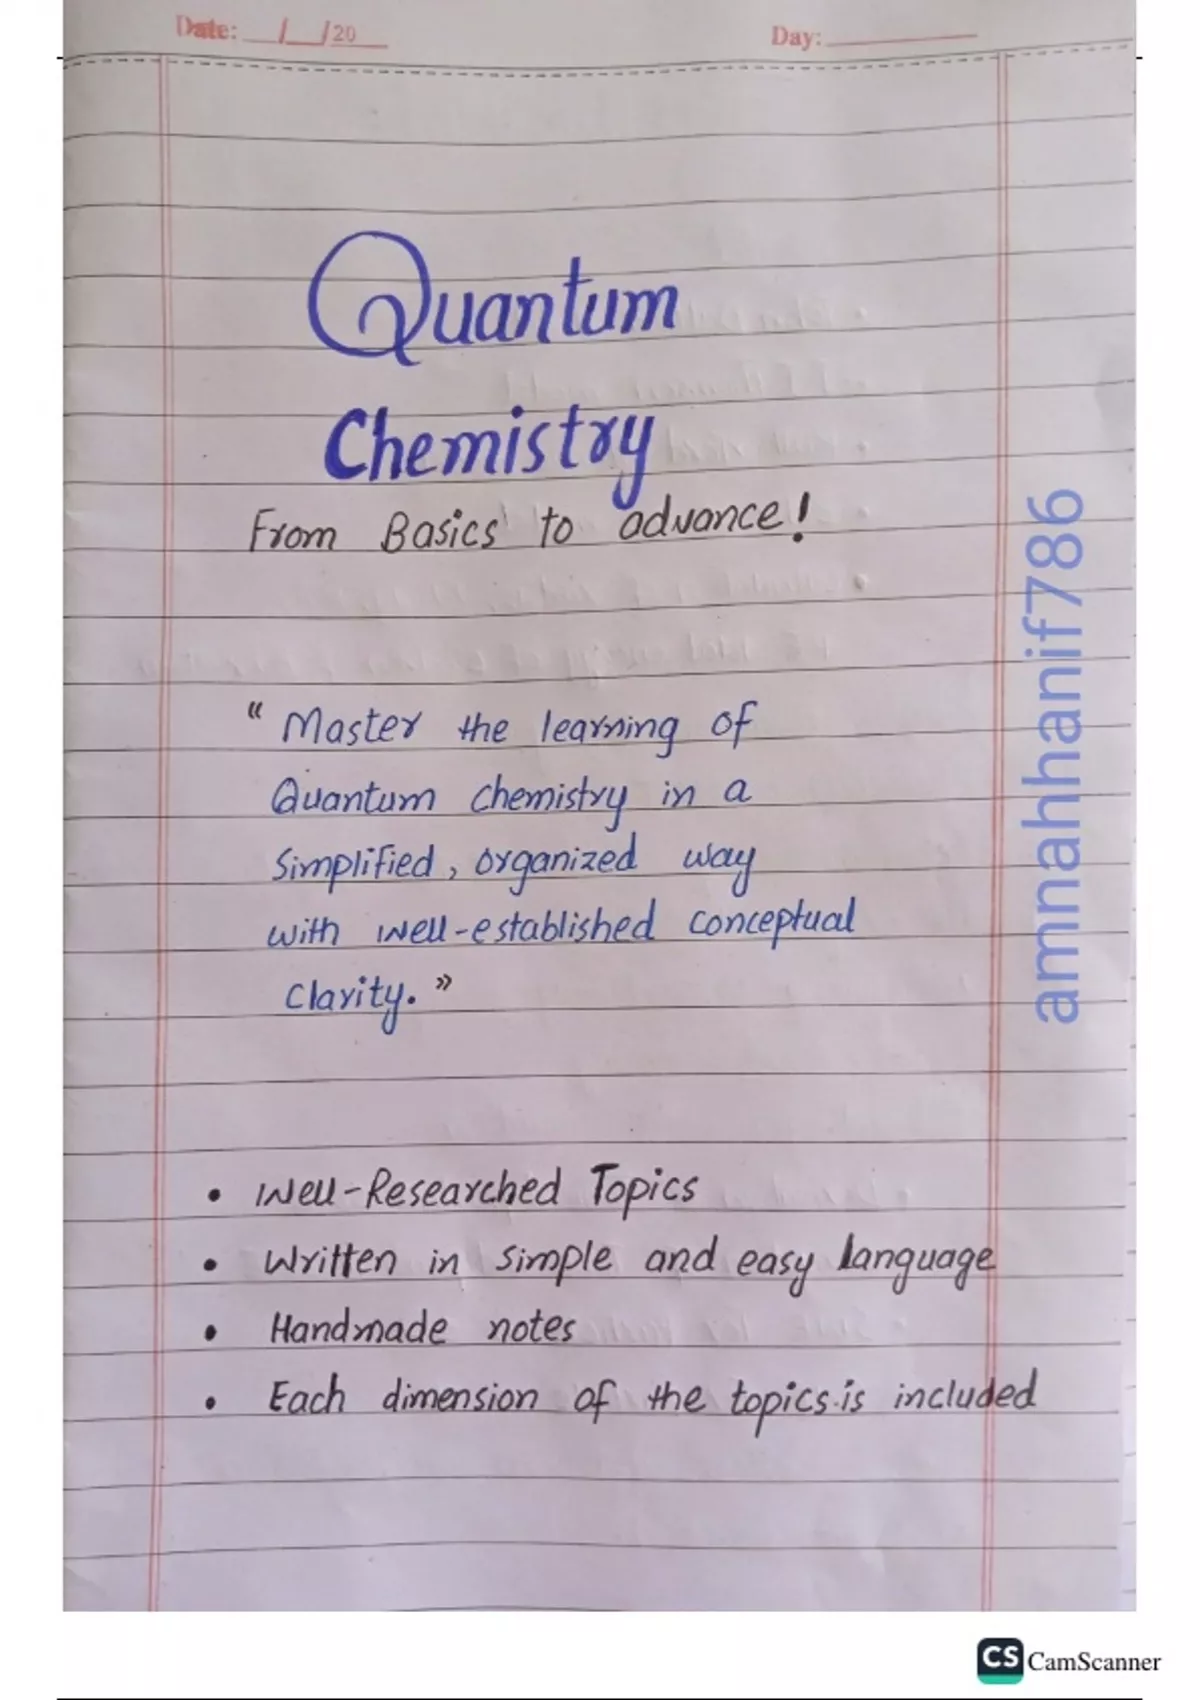 Date: __/__/20__ Day: ______
Quantum
Chemistry
From Basics to advance!
"Master the learning of
Quantum chemistry in a
Simplified, organized way
with well-established conceptual
Clarity."
• Well-Researched Topics
• Written in simple and easy language
• Handmade notes
• Each dimension of the topics is included
amnahhanif786
CS CamScanner